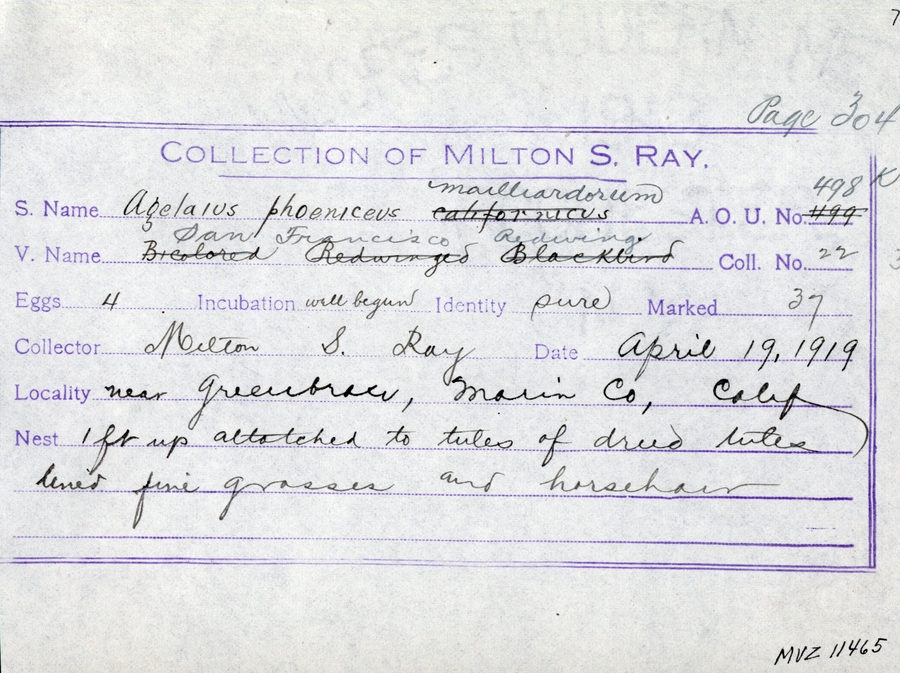 7
Page 304
COLLECTION OF MILTON S. RAY.
mailliardorum 498 K
S. Name Agelaius phoeniceus californicus A. O. U. No. 499
San Francisco Redwing
V. Name Bicolored Redwinged Blackbird Coll. No. 22 3
Eggs 4 Incubation well begun Identity pure Marked 37
Collector Milton S. Ray Date April 19, 1919
Locality near Greenbrae, Marin Co, Calif
Nest 1 ft up attatched to tules of dried tules
lined fine grasses and horsehair
MVZ 11465